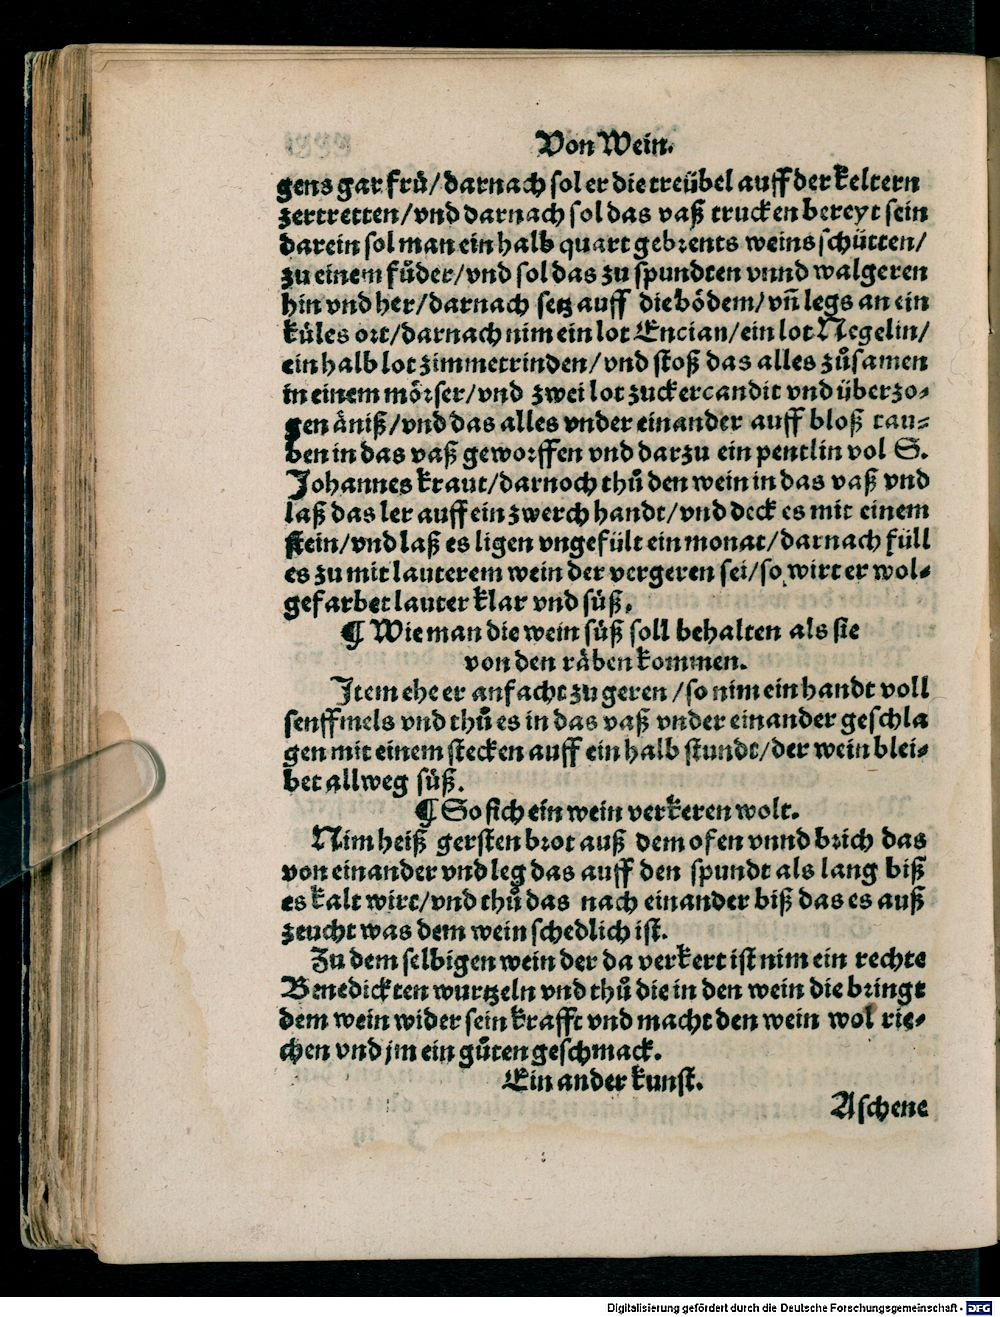 Von Wein.
gens gar frů/darnach sol er die treübel auff der keltern
zertretten/vnd darnach sol das vaß trucken bereyt sein
darein sol man ein halb quart gebrents weins schütten/
zu einem fůder/vnd sol das zu spundten vnnd walgeren
hin vnd her/darnach setz auff die bödem/vñ legs an ein
küles ort/darnach nim ein lot Encian/ein lot Negelin/
ein halb lot zimmetrinden/vnd stoß das alles zůsamen
in einem mörser/vnd zwei lot zuckercandit vnd überzo-
gen äniß/vnd das alles vnder einander auff bloß tau-
ben in das vaß geworffen vnd darzu ein pentlin vol S.
Johannes kraut/darnoch thů den wein in das vaß vnd
laß das ler auff ein zwerch handt/vnd deck es mit einem
stein/vnd laß es ligen vngefült ein monat/darnach füll
es zu mit lauterem wein der vergeren sei/so wirt er wol-
gefarbet lauter klar vnd süß.
¶ Wie man die wein süß soll behalten als sie
von den räben kommen.
Item ehe er anfacht zu geren/so nim ein handt voll
senffmels vnd thů es in das vaß vnder einander geschla
gen mit einem stecken auff ein halb stundt/der wein blei-
bet allweg süß.
¶ So sich ein wein verkeren wolt.
Nim heiß gersten brot auß dem ofen vnnd brich das
von einander vnd leg das auff den spundt als lang biß
es kalt wirt/vnd thů das nach einander biß das es auß
zeucht was dem wein schedlich ist.
Zu dem selbigen wein der da verkert ist nim ein rechte
Benedickten wurtzeln vnd thů die in den wein die bringt
dem wein wider sein krafft vnd macht den wein wol rie-
chen vnd jm ein gůten geschmack.
Ein ander kunst.
Aschene
Digitalisierung gefördert durch die Deutsche Forschungsgemeinschaft - DFG